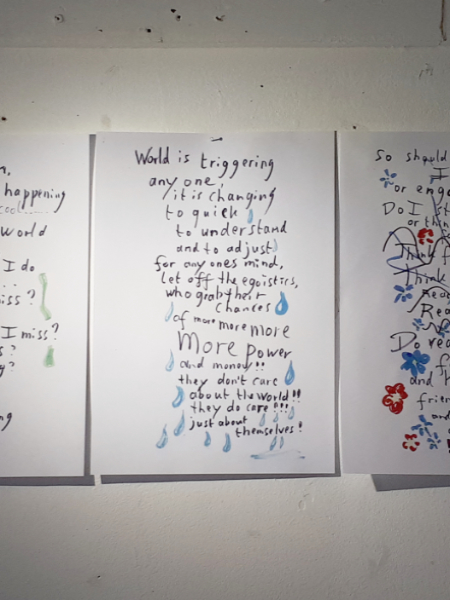 happening
cool
world
I do
miss?
I miss?
World is triggering
any one,
it is changing
to quick
to understand
and to adjust
for any ones mind,
let off the egoistics,
who grab their
chances
of more more more
More Power
and money!!
they don't care
about the world!!
they do care!!!
just about
themselves!
So should
I
or enga
Do I st
or thin
Think f
Think
Read
Rea
Do rea
and h
frien
and